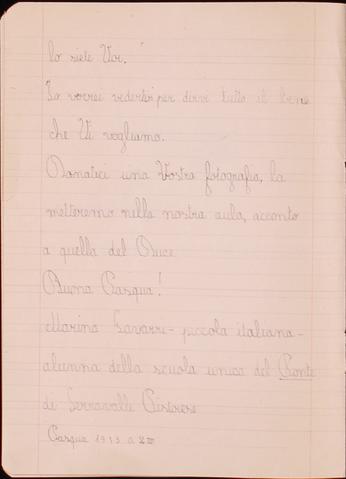 lo siete Voi.
Io vorrei vedervi per dirvi tutto il bene
che Vi vogliamo.
Donateci una Vostra fotografia, la
metteremo nella nostra aula, accanto
a quella del Duce
Buona Pasqua!
Marina - piccola italiana -
alunna della scuola unica del Ponte
di Serravalle Pistoiese
Pasqua